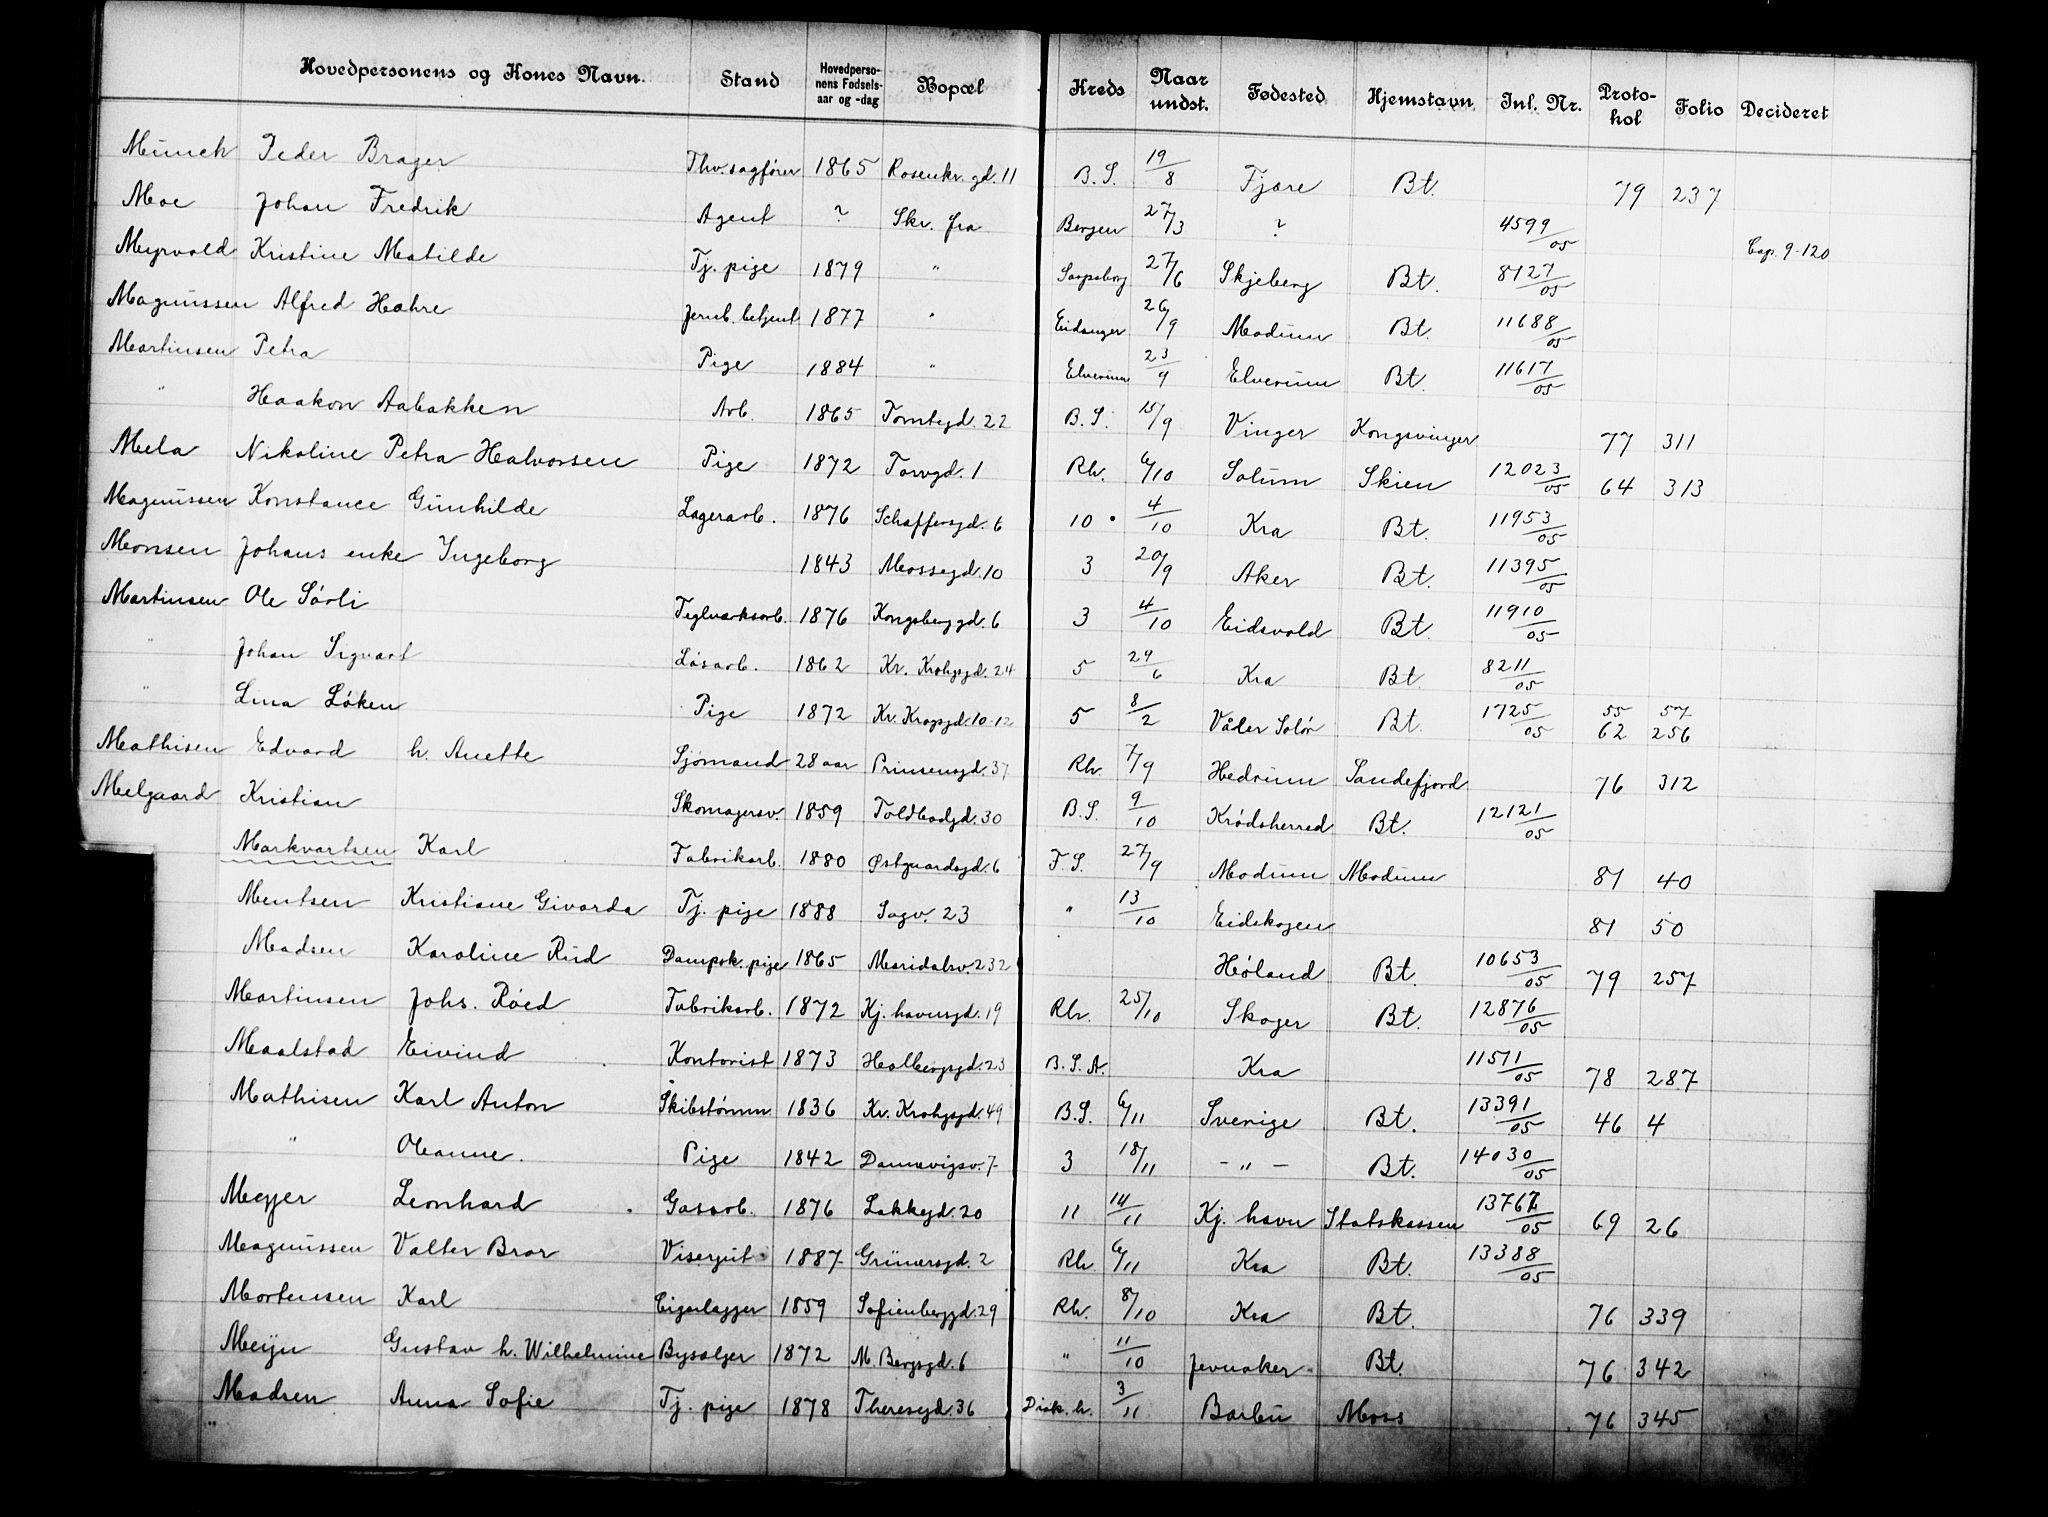 Hovedpersonens og Kones Navn. Stand Hovedperso-nens Fødsels-aar og -dag Bopæl Kreds Naar undst. Fødested Hjemstavn Inl. Nr. Proto-kol Folio Decideret
Munch Peder Brager Thv. sagfører 1865 Rosenkr. gd. 11 B. S. 19/8 Fjære Bt. 79 237
Moe Johan Fredrik Agent ? Skr. fra Bergen 27/3 ? 4599/05 Cap. 9-120
Myrvold Kristine Matilde Tj. pige 1879 " Sarpsborg 27/6 Skjeberg Bt. 8127/05
Magnussen Alfred Hahre Jernb. betjent 1877 " Eidanger 26/9 Modum Bt. 11688/05
Martinsen Petra Pige 1884 " Elverum 23/9 Elverum Bt. 11617/05
" Haakon Aabakken Arb. 1865 Tomtegd. 22 B. S. 15/9 Vinger Kongsvinger 77 311
Mela Nikoline Petra Halvorsen Pige 1872 Torvgd. 1 Rh. 6/10 Solum Skien 12023/05 64 313
Magnussen Konstance Gunhilde Lagerarb. 1876 Schaffersgd. 6 10 4/10 Kra Bt. 11953/05
Monsen Johans enke Ingeborg 1843 Mossegd. 10 3 20/9 Aker Bt. 11395/05
Martinsen Ole Sörli Teglværksarb. 1876 Kongsberggd. 6 3 4/10 Eidsvold Bt. 11910/05
" Johan Sigvart Løsarb. 1862 Kr. Krohgsgd. 24 5 29/6 Kra Bt. 8211/05
" Lina Löken Pige 1872 Kr. Krogsgd. 10-12 5 8/2 Våler Solör Bt. 1725/05 55 57
62 256
Mathisen Edvard h. Anette Sjømand 28 aar Prinsensgd. 37 Rh. 7/9 Hedrum Sandefjord 76 312
Melgaard Kristian Skomagersv. 1859 Toldbodgd. 30 B. S. 9/10 Krödsherred Bt. 12121/05
Markvartsen Karl Fabrikarb. 1880 Østgaardsgd. 6 F. S. 27/9 Modum Modum 81 40
Mentsen Kristiane Givarda Tj. pige 1888 Sagv. 23 " 13/10 Eidskogen 81 50
Madsen Karoline Rud Dampsk. pige 1865 Maridalsv. 232 Höland Bt. 10653/05 79 257
Martinsen Johs. Röed Fabrikarb. 1872 Kj. havnsgd. 19 Rh. 25/10 Skoger Bt. 12876/05
Maalstad Eivind Kontorist 1873 Holbergsgd. 23 B. S. A. Kra 11511/05 78 287
Mathisen Karl Anton Skibstømm 1836 Kr. Krohgsgd. 49 B. S. 6/11 Sverige Bt. 13391/05 46 4
" Oleanne. Pige 1842 Damsvigsv. 7 3 18/11 - " - Bt. 14030/05
Meyer Leonhard Gasarb. 1876 Lakkegd. 20 11 14/11 Kj. havn Statskassen 13767/05 69 26
Magnussen Valter Bror Visergut 1887 Grünersgd. 2 Rh. 6/11 Kra Bt. 13388/05
Mortensen Karl Cigarlagger 1859 Sofienberggd. 29 Rh. 8/10 Kra Bt. 76 339
Meijn Gustav h. Wilhelmine Bysælger 1872 M. Bergsgd. 6 " 11/10 Jevnaker Bt. 76 342
Madsen Anna Sofie Tj. pige 1878 Theresegd. 36 Diak. h. 3/11 Barbu Moss 76 345